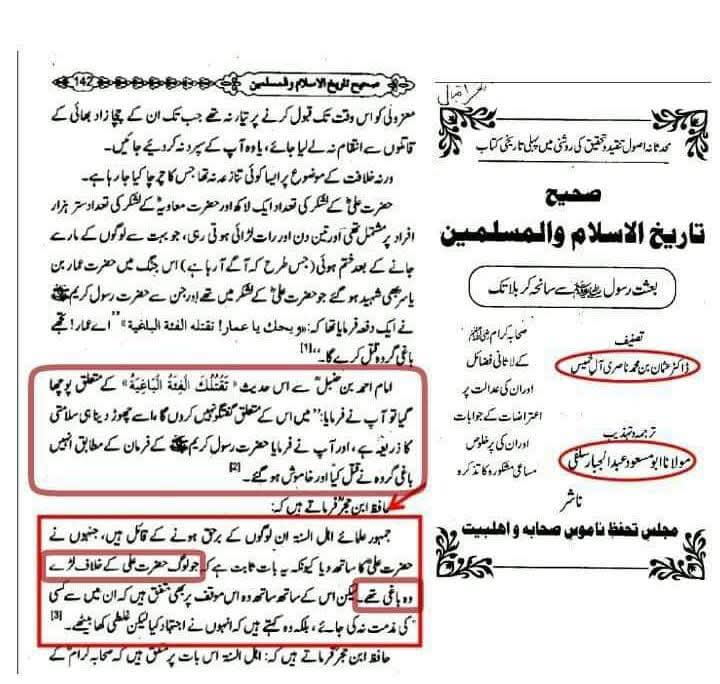 صحیح تاریخ الاسلام والمسلمین
142
معزولی کو اس وقت تک قبول کرنے پر تیار نہ تھے جب تک ان کے چچا زاد بھائی کے
قاتلوں سے انتقام نہ لے لیا جائے، یا وہ آپ کے سپرد نہ کر دیئے جائیں۔
ورنہ خلافت کے موضوع پر ایسا کوئی تنازعہ نہ تھا جس کا چرچا کیا جا رہا ہے۔
حضرت علیؓ کے لشکر کی تعداد ایک لاکھ اور حضرت معاویہؓ کے لشکر کی تعداد ستر ہزار
افراد پر مشتمل تھی اور تین دن اور رات لڑائی ہوتی رہی، جو بہت سے لوگوں کے مارے
جانے کے بعد ختم ہوئی (جس طرح کہ آگے آ رہا ہے) اس جنگ میں حضرت عمار بن
یاسرؓ بھی شہید ہو گئے جو حضرت علیؓ کے لشکر میں تھے اور جن سے حضرت رسول کریم ﷺ
نے ایک دفعہ فرمایا تھا کہ: «ویحك یا عمار! تقتله الفئة الباغیة» "اے عمار! تجھے
باغی گروہ قتل کرے گا۔" [1]
امام احمد بن حنبلؒ سے اس حدیث «تَقْتُلُكَ الْفِئَةُ الْبَاغِيَةُ» کے متعلق پوچھا
گیا تو آپ نے فرمایا: "میں اس کے متعلق گفتگو نہیں کروں گا، اسے چھوڑ دینا ہی سلامتی
کا ذریعہ ہے، اور آپ نے فرمایا حضرت رسول کریم ﷺ کے فرمان کے مطابق انہیں
باغی گروہ نے قتل کیا اور خاموش ہو گئے۔ [2]
حافظ ابن حجرؒ فرماتے ہیں کہ:
جمہور علمائے اہل السنۃ ان لوگوں کے برحق ہونے کے قائل ہیں، جنہوں نے
حضرت علیؓ کا ساتھ دیا کیونکہ یہ بات ثابت ہے کہ جو لوگ حضرت علی کے خلاف لڑے
وہ باغی تھے۔ لیکن اس کے ساتھ ساتھ وہ اس موقف پر بھی متفق ہیں کہ ان میں سے کسی
کی مذمت نہ کی جائے، بلکہ وہ کہتے ہیں کہ انہوں نے اجتہاد کیا لیکن غلطی کھا بیٹھے۔ [3]
حافظ ابن حجرؒ فرماتے ہیں کہ: اہل السنۃ اس بات پر متفق ہیں کہ صحابہ کرامؓ کے
محدثانہ اصول تنقید و تحقیق کی روشنی میں پہلی تاریخی کتاب
صحیح
تاریخ الاسلام والمسلمین
بعثت رسول ﷺ سے سانحہ کربلا تک
صحابہ کرام
کے لاثانی فضائل
اور ان کی عدالت پر
اعتراضات کے جوابات
اور ان کی پرخلوص
مساعی مشکورہ کا تذکرہ
تصنیف
ڈاکٹر عثمان بن محمد ناصری آل خمیس
ترجمہ وتہذیب
مولانا ابو مسعود عبدالجبار سلفی
ناشر
مجلس تحفظ ناموس صحابہ و اهلبیت